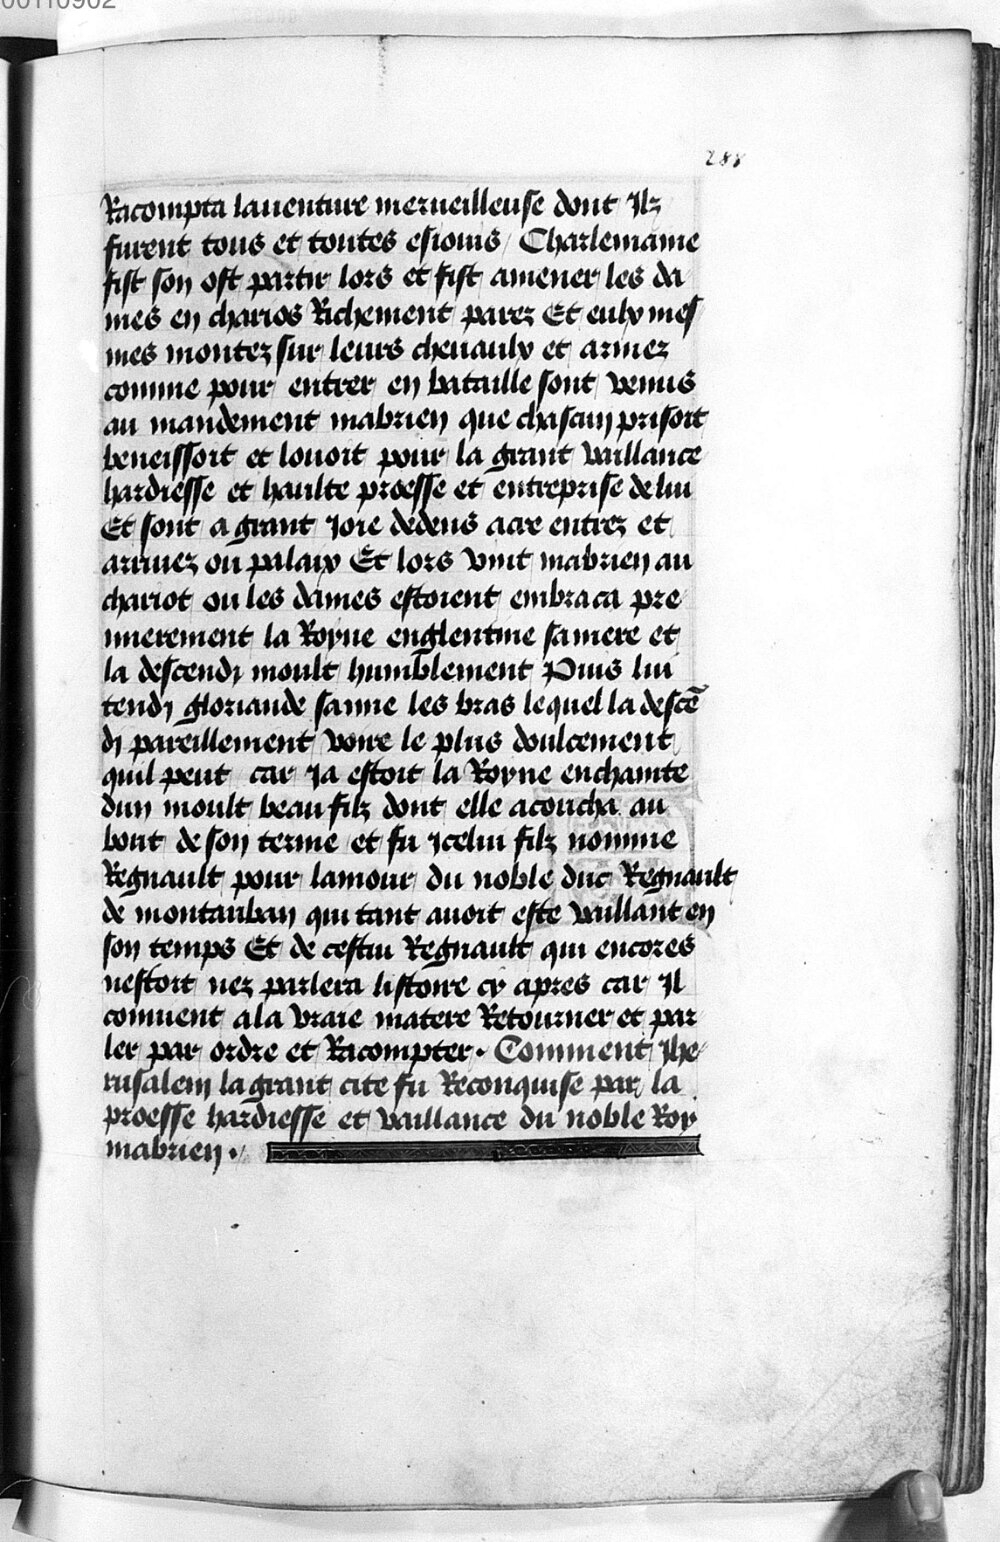 00110902
288
Racompta lauenture merueilleuse dont Ilz
furent tous et toutes esiouis / Charlemaine
fist son ost partir lors et fist amener les da
mes en charios Richement parez Et eulx mes
mes montez sur leurs cheuaulx et armez
comme pour entrer en bataille sont venus
au mandement mabrien que chascun prisoit
beneissoit et louoit pour la grant vaillance
hardiesse et haulte proesse et entreprise de lui
Et sont a grant Joie dedens acre entrez et
arriuez ou palaix Et lors vint mabrien au
chariot ou les dames estoient embraca pre
mierement la Royne englentine sa mere et
la descendy moult humblement Puis lui
tendy gloriande sa nne les bras lequel la descē
dy pareillement voire le plus doulcement
quil peut car Ja estoit la Royne enchainte
dun moult beau filz dont elle acoucha au
bout de son terme et fu Jcelui filz nomme
Regnault pour lamour du noble duc Regnault
de montauban qui tant auoit este vaillant en
son temps Et de cestui Regnault qui encores
nestoit nez parlera listoire cy apres car Il
conuient a la vraie matere Retourner et par
ler par ordre et Racompter . Comment Jhe
rusalem la grant cite fu Reconquise par la
proesse hardiesse et vaillance du noble Roy
mabrien .